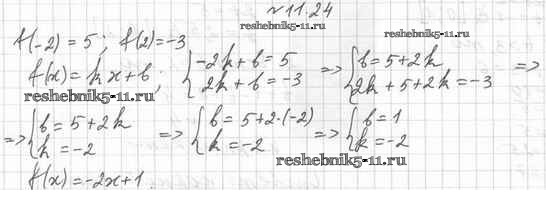 № 11.24
reshebnik5-11.ru
reshebnik5-11.ru
f(-2) = 5; f(2) = -3
f(x) = kx + b; { -2k + b = 5 => { b = 5 + 2k =>
2k + b = -3 2k + 5 + 2k = -3
reshebnik5-11.ru
=> { b = 5 + 2k => { b = 5 + 2·(-2) => { b = 1
k = -2 k = -2 k = -2
reshebnik5-11.ru
f(x) = -2x + 1.